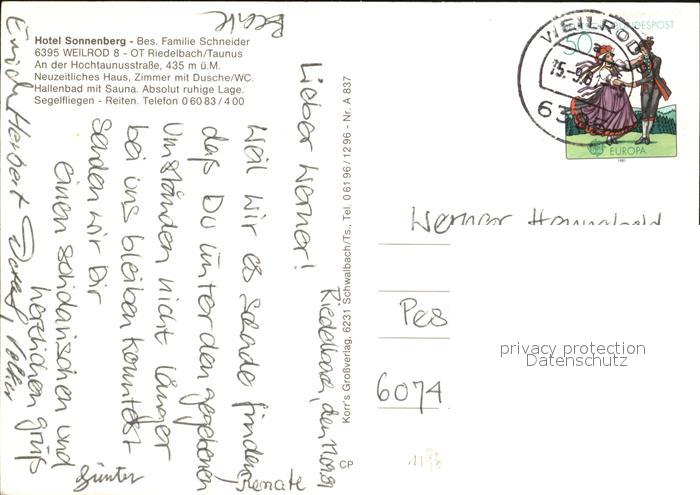 Hotel Sonnenberg - Bes. Familie Schneider
6395 WEILROD 8 - OT Riedelbach/Taunus
An der Hochtaunusstraße, 435 m ü.M.
Neuzeitliches Haus, Zimmer mit Dusche/WC.
Hallenbad mit Sauna. Absolut ruhige Lage.
Segelfliegen - Reiten. Telefon 0 60 83 / 4 00
Riedelbach, den
Lieber Werner!
Weil wir es schade finden
daß Du unter den gegebenen
Umständen nicht länger
bei uns bleiben konntest
senden wir Dir
einen solidarischen und
herzlichen Gruß
Günter
Renate
Herbert
Volker
Korr's Großverlag, 6231 Schwalbach/Ts., Tel. 0 61 96 / 12 96 - Nr. A 837
CP
WEILROD
BUNDESPOST
50
EUROPA
1981
Werner
6074
1196
privacy protection
Datenschutz